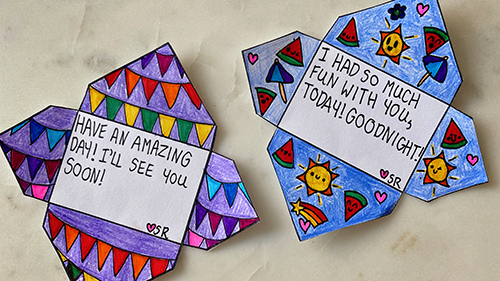 HAVE AN AMAZING
DAY! I'LL SEE YOU
SOON!
♥SR
I HAD SO MUCH
FUN WITH YOU,
TODAY! GOODNIGHT!
♥SR